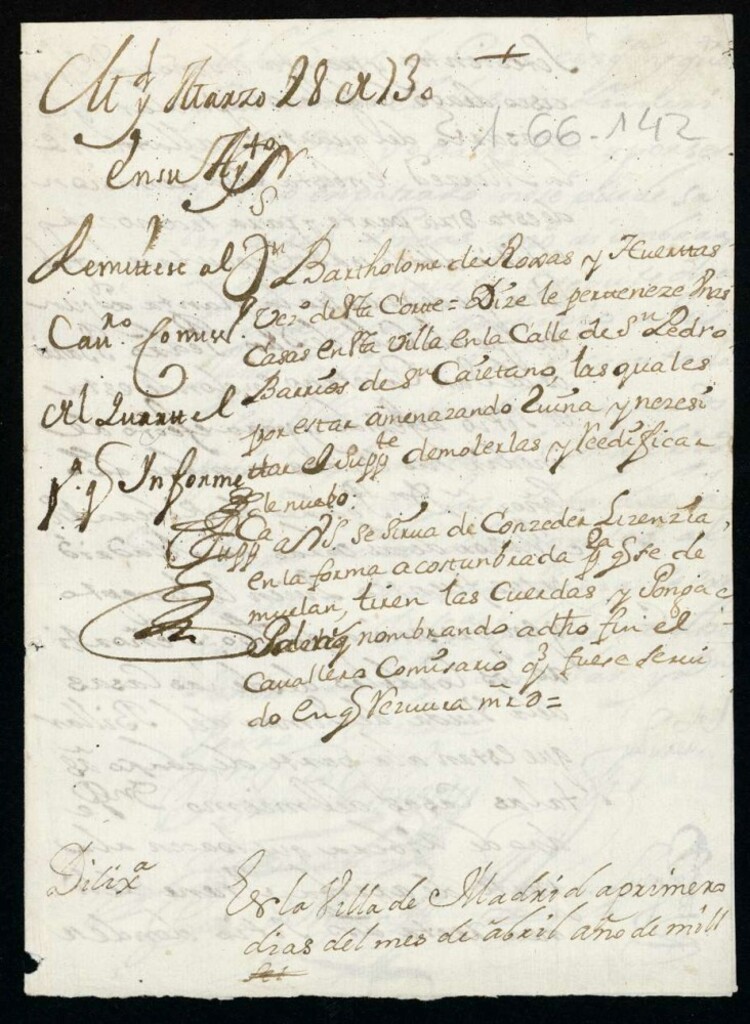 Md y Marzo 28 de 730
1-66-142
En su Ayto
S
Remitese al
Cauo Comisso
Al Quartel
pa q Informe
Dn Bartholome de Roxas y Huerttas
Vezo de Sta Corte = Dize le perteneze Unas
Casas en Sta Villa en la Calle de Sn Pedro
Barrios de Sn Caietano, las quales
por estar amenazando Ruina y nezesi
ttar el Suppte demolerlas y Reedificar
de nuebo.
Suppca a VS. se sirva de Conzeder Lizenzia
en la forma acostunbrada pa q se de
muelan, tiren las Cuerdas y Ponga
nombrando a dho fin el
Cavallero Comisario q fuese servi
do en q Rezivira mrd =
Dilixa
En la Villa de Madrid a primero
dias del mes de abril año de mill